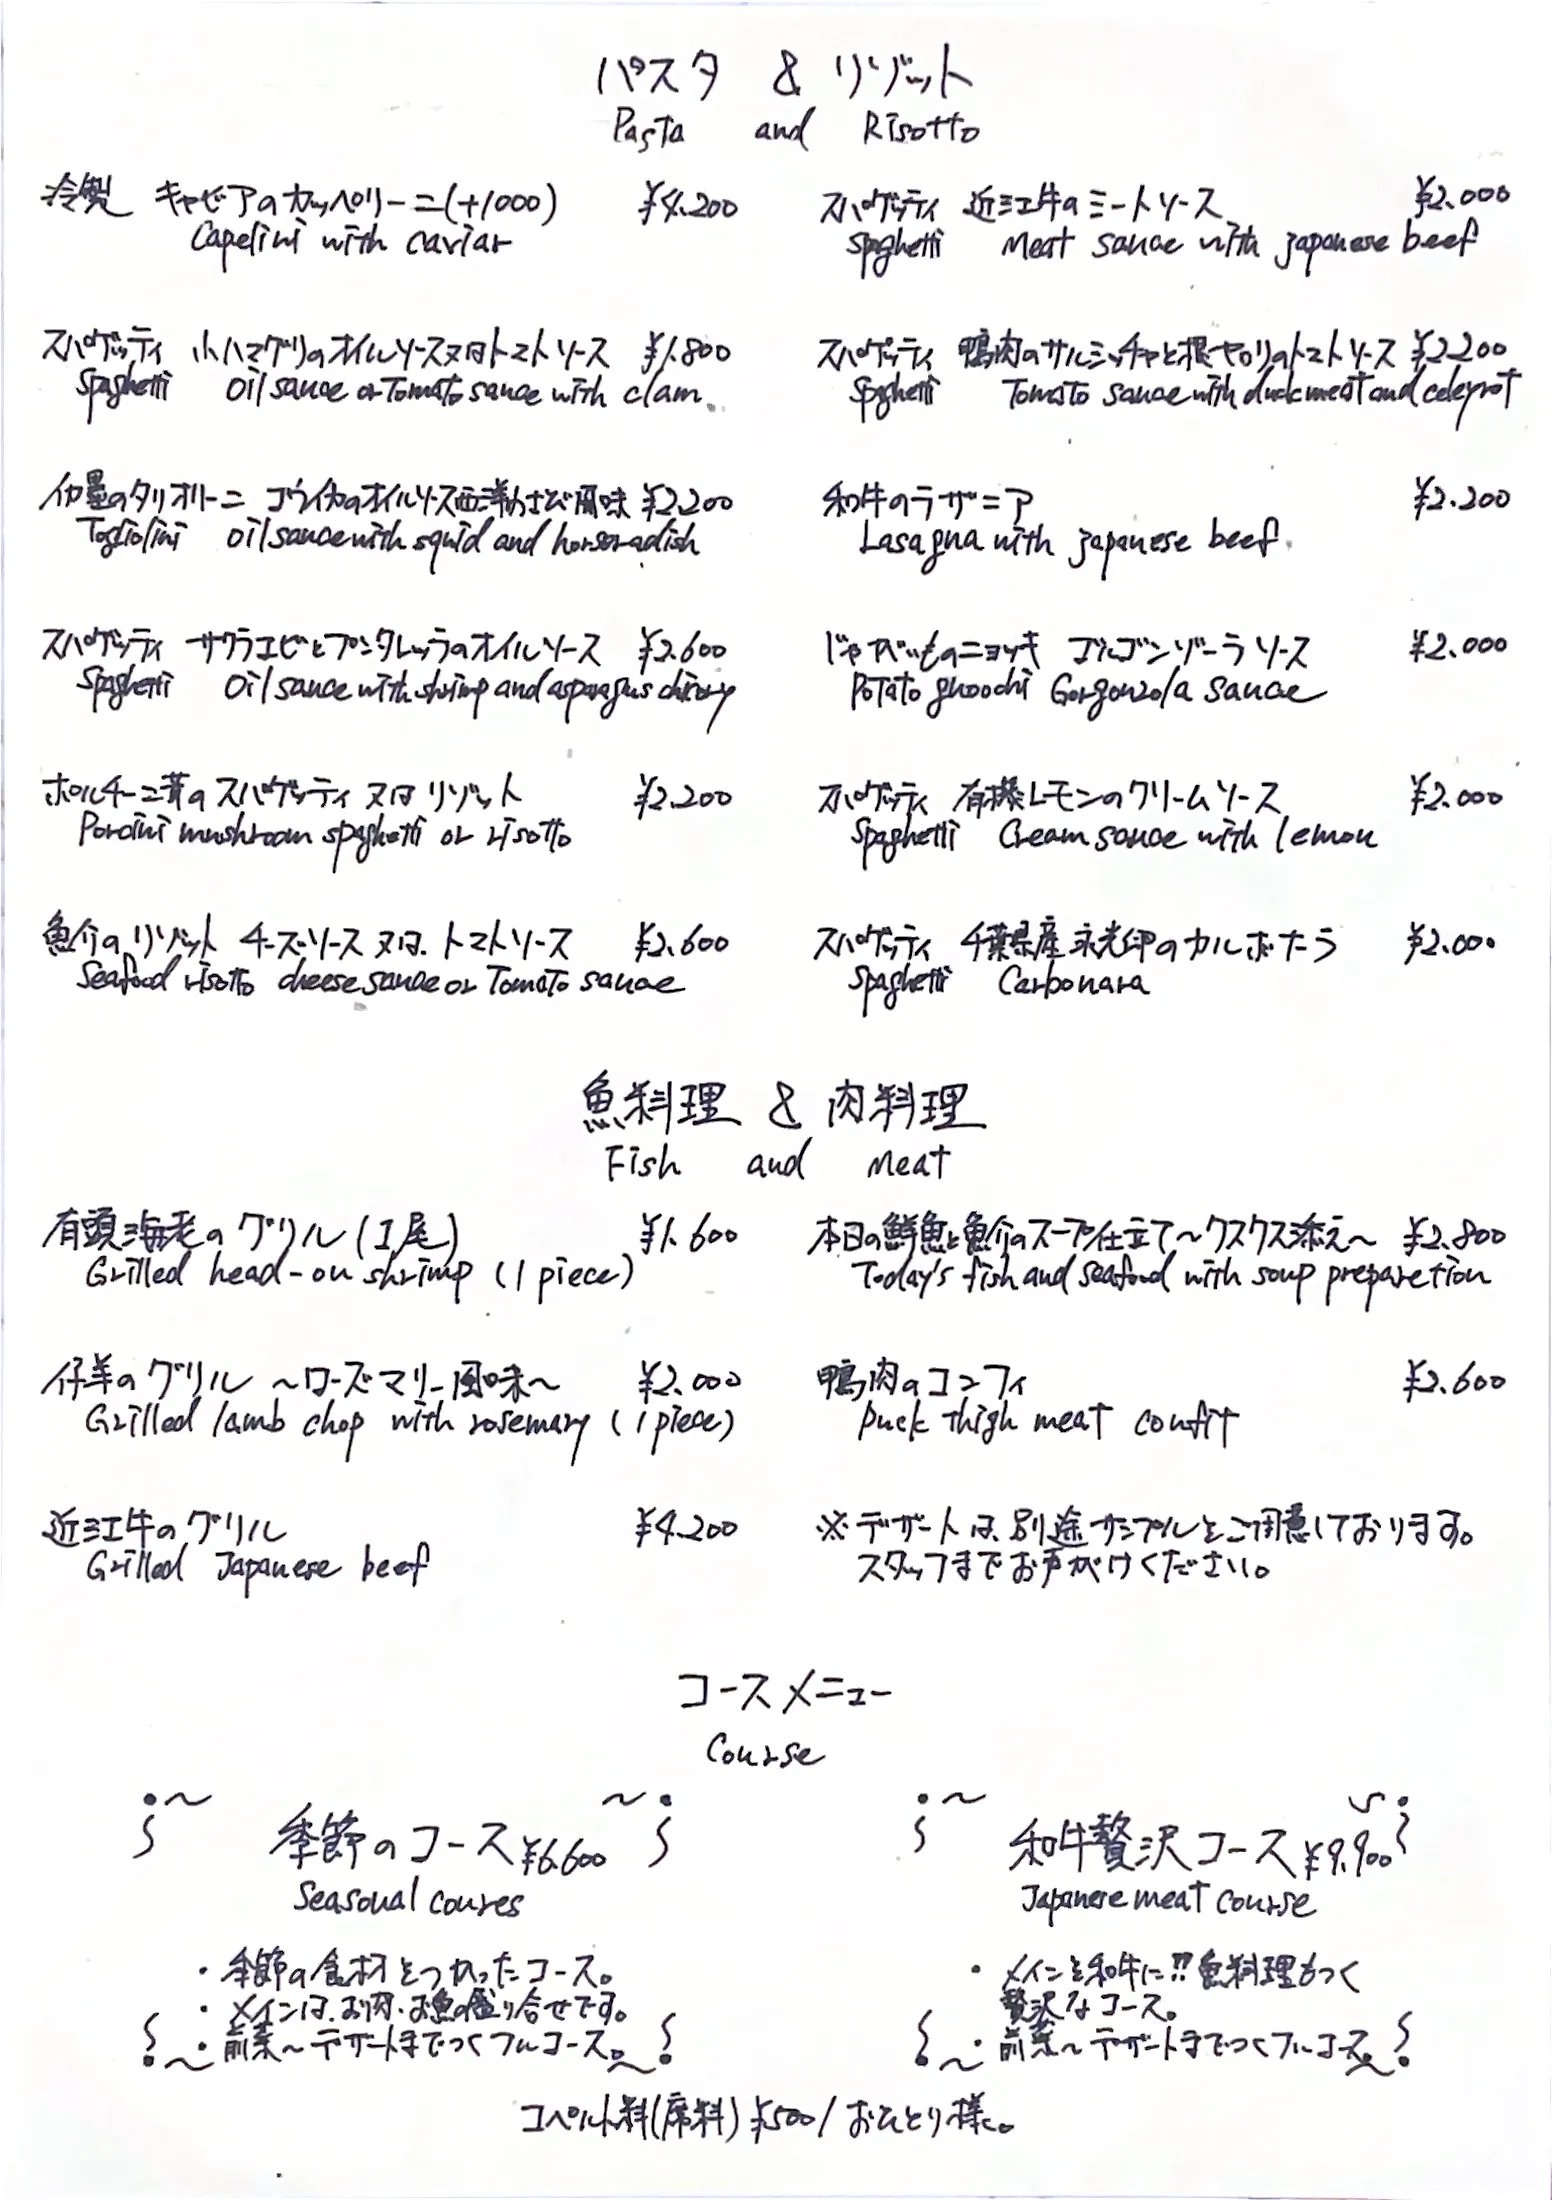 パスタ & リゾット
Pasta and Risotto
冷製 キャビアのカッペリーニ(+1000) ¥4.200
Capelini with caviar
スパゲッティ 小ハマグリのオイルソース又はトマトソース ¥1.800
Spaghetti Oil sauce or Tomato sauce with clam.
イカ墨のタリオリーニ コウイカのオイルソース西洋わさび風味 ¥2.200
Togliolini Oil sauce with squid and horseradish
スパゲッティ サクラエビとプンタレッラのオイルソース ¥2.600
Spaghetti Oil sauce with shrimp and asparagus chicory
ポルチーニ茸のスパゲッティ又はリゾット ¥2.200
Porcini mushroom spaghetti or risotto
魚介のリゾット チーズソース又は.トマトソース ¥2.600
Seafood risotto cheese sauce or Tomato sauce
スパゲッティ 近江牛のミートソース ¥2.000
Spaghetti Meat sauce with japanese beef
スパゲッティ 鴨肉のサルシッチャと根セロリのトマトソース ¥2.200
Spghetti Tomato sauce with duck meat and celeyrot
和牛のラザニア ¥2.200
Lasagna with japanese beef.
じゃがいものニョッキ ゴルゴンゾーラソース ¥2.000
Potato gnocchi Gorgonzola sauce
スパゲッティ 有機レモンのクリームソース ¥2.000
Spaghetti Cream sauce with lemon
スパゲッティ 千葉県産永光卵のカルボナーラ ¥2.000
Spaghetti Carbonara
魚料理 & 肉料理
Fish and Meat
有頭海老のグリル(1尾) ¥1.600
Grilled head-on shrimp (1 piece)
仔羊のグリル 〜ローズマリー風味〜 ¥2.000
Grilled lamb chop with rosemary (1 piece)
近江牛のグリル ¥4.200
Grilled Japanese beef
本日の鮮魚と魚介のスープ仕立て〜クスクス添え〜 ¥2.800
Today's fish and seafood with soup preparetion
鴨肉のコンフィ ¥2.600
Duck thigh meat confit
※デザートは、別途サンプルをご用意しております。
スタッフまでお声がけください。
コースメニュー
Course
季節のコース ¥6.600
Seasonal coures
・季節の食材をつかったコース。
・メインは、お肉・お魚の盛り合せです。
・前菜〜デザートまでつくフルコース。
和牛贅沢コース ¥9.900
Japanese meat course
・メインを和牛に!!魚料理もつく
贅沢なコース。
・前菜〜デザートまでつくフルコース。
コペルト料(席料) ¥500/おひとり様。